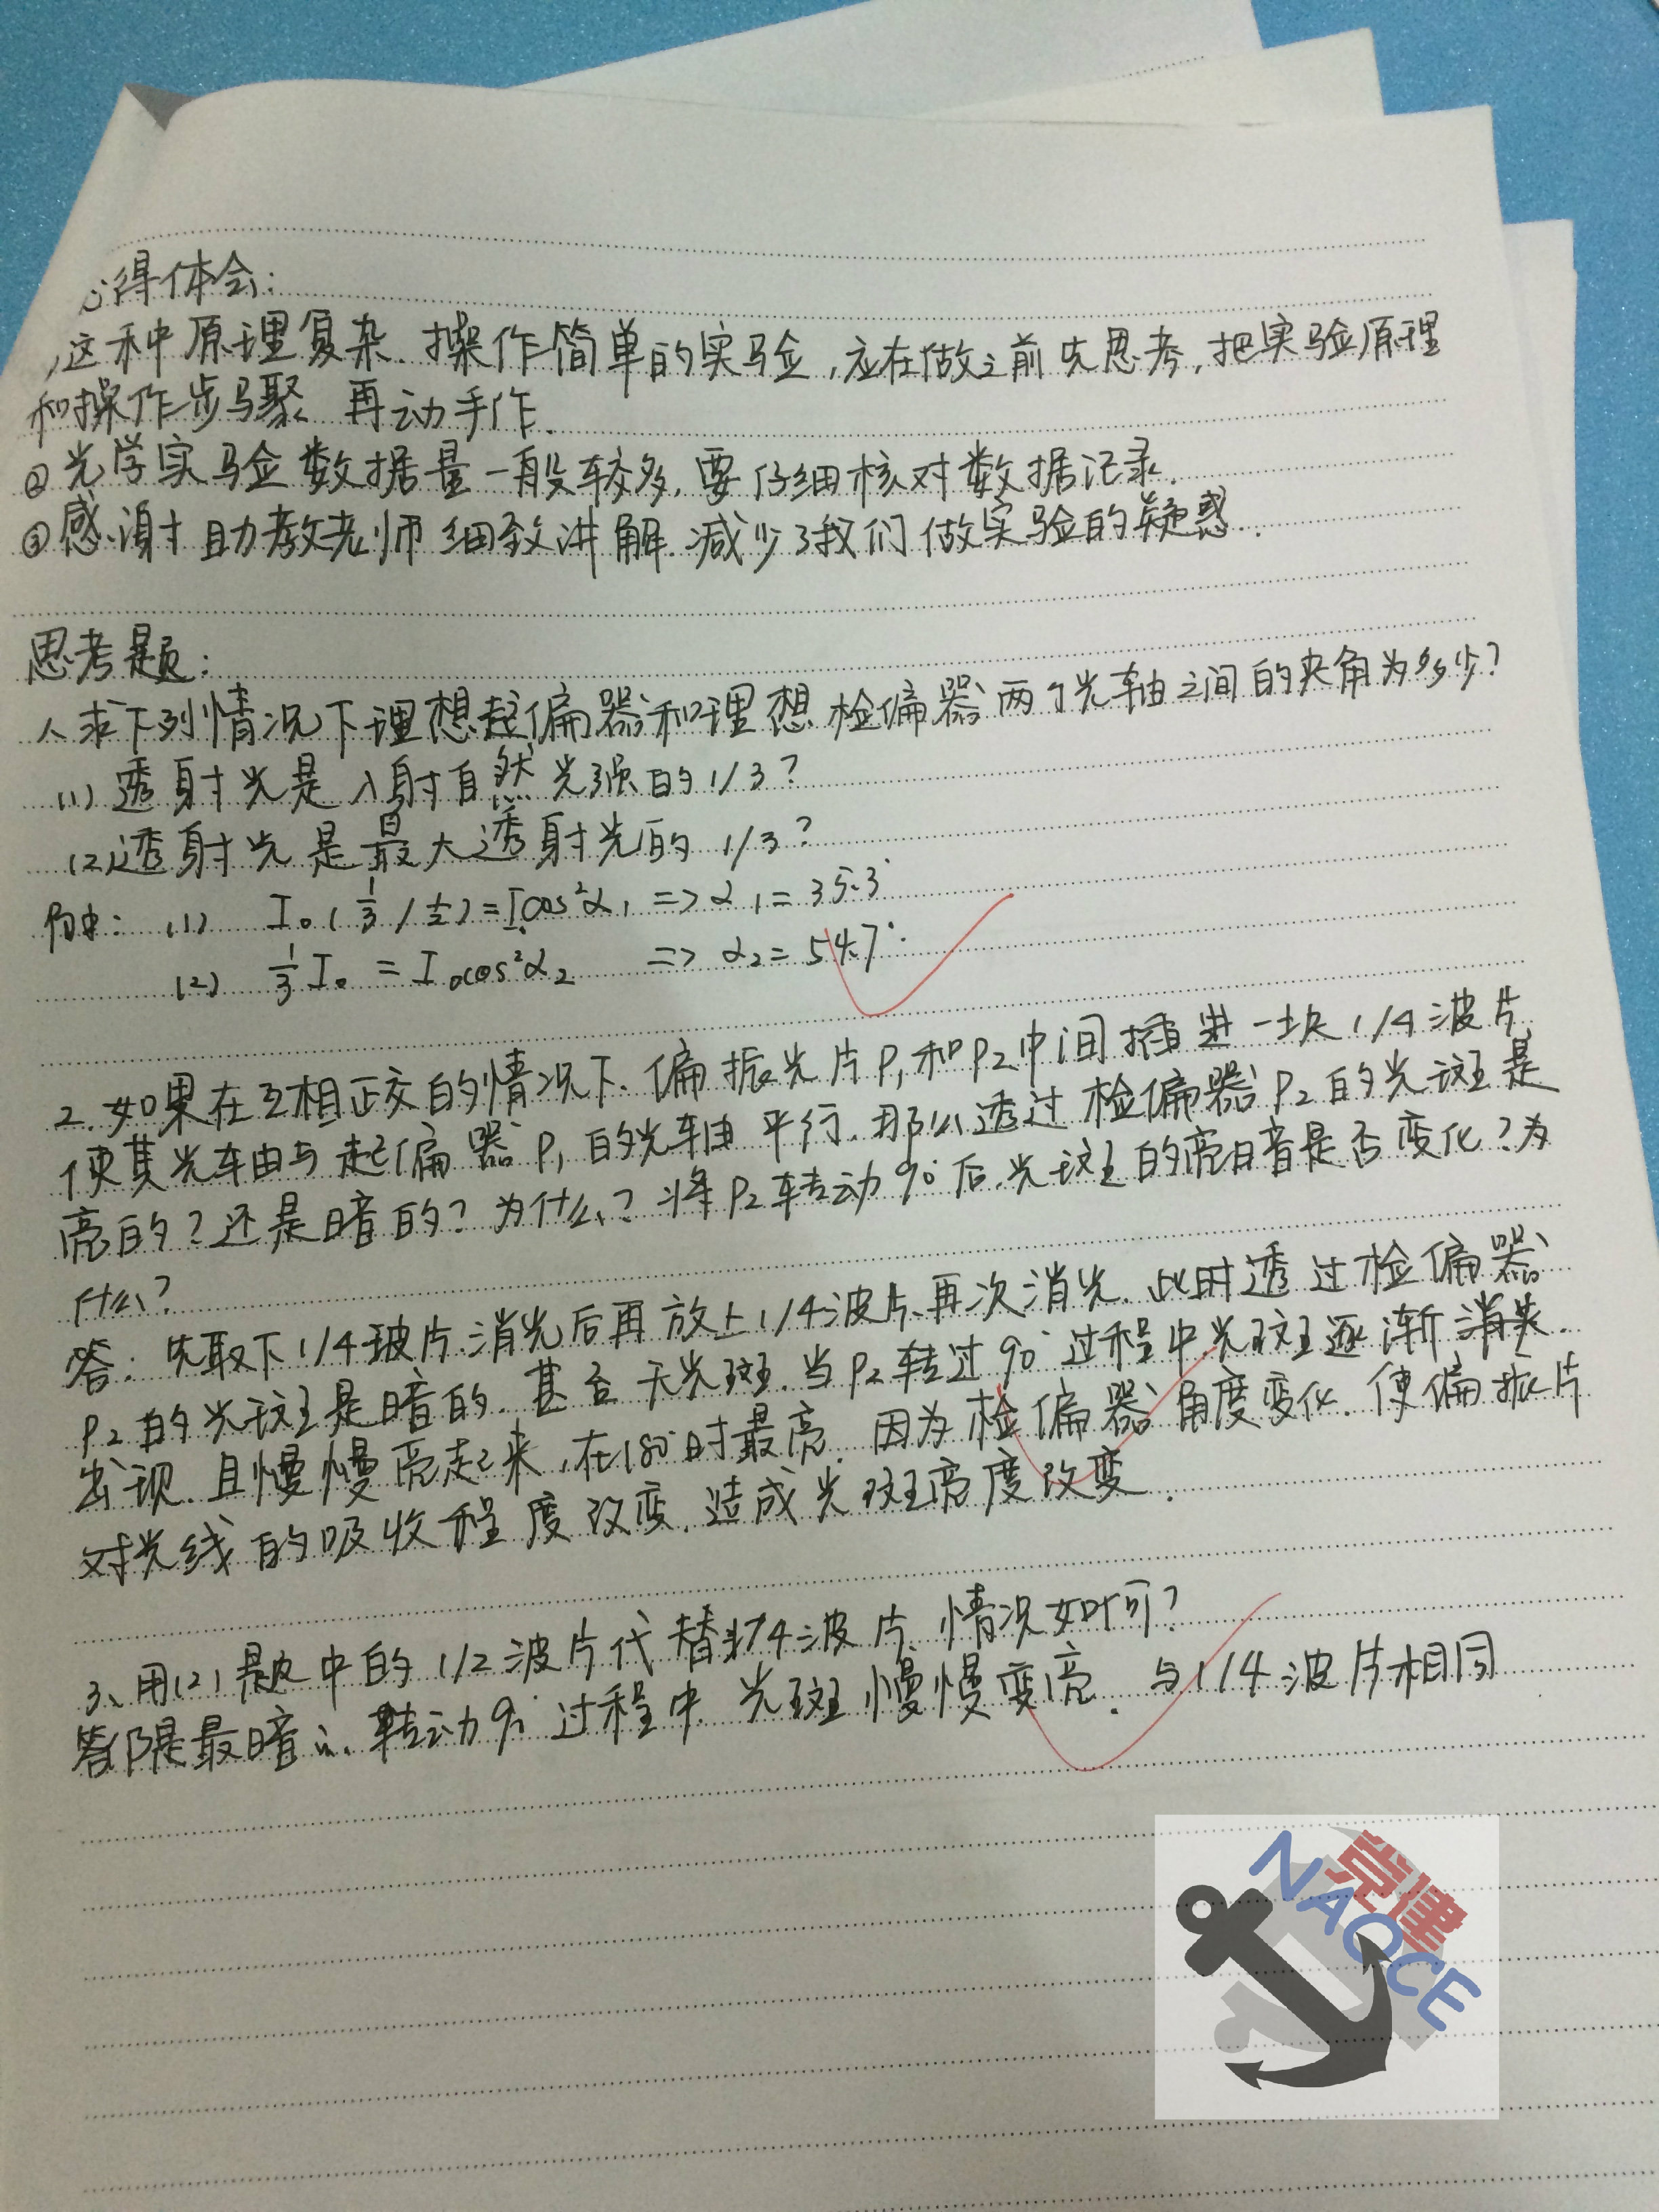 心得体会:
,这种原理复杂.操作简单的实验,应在做之前先思考,把实验原理
和操作步骤 再动手作.
②光学实验数据量一般较多,要仔细核对数据记录.
③感谢助教老师细致讲解.减少了我们做实验的疑惑.
思考题:
1.求下列情况下理想起偏器和理想检偏器两个光轴之间的夹角为多少?
(1)透射光是入射自然光强的1/3?
(2)透射光是最大透射光的1/3?
(1) I₀(1/3 / 1/2)=I₀cos²α₁ => α₁=35.3°
(2) 1/3 I₀ = I₀cos²α₂ => α₂=54.7°.
2.如果在互相正交的情况下.偏振光片P₁和P₂中间插进一块1/4波片,
使其光轴与起偏器P₁的光轴平行.那么透过检偏器P₂的光斑是
亮的?还是暗的?为什么?将P₂转动90°后.光斑的亮暗是否变化?为
什么?
答:先取下1/4玻片.消光后再放上1/4波片.再次消光.此时透过检偏器
P₂的光斑是暗的.甚至无光斑.当P₂转过90°过程中.光斑逐渐消失.
出现.且慢慢亮起来,在180°时最亮.因为检偏器角度变化.使偏振片
对光线的吸收程度改变.造成光斑亮度改变.
3、用(2)题中的1/2波片代替1/4波片.情况如何?
答:是最暗的.转动90°过程中.光斑慢慢变亮.与1/4波片相同
党建
NAOCE